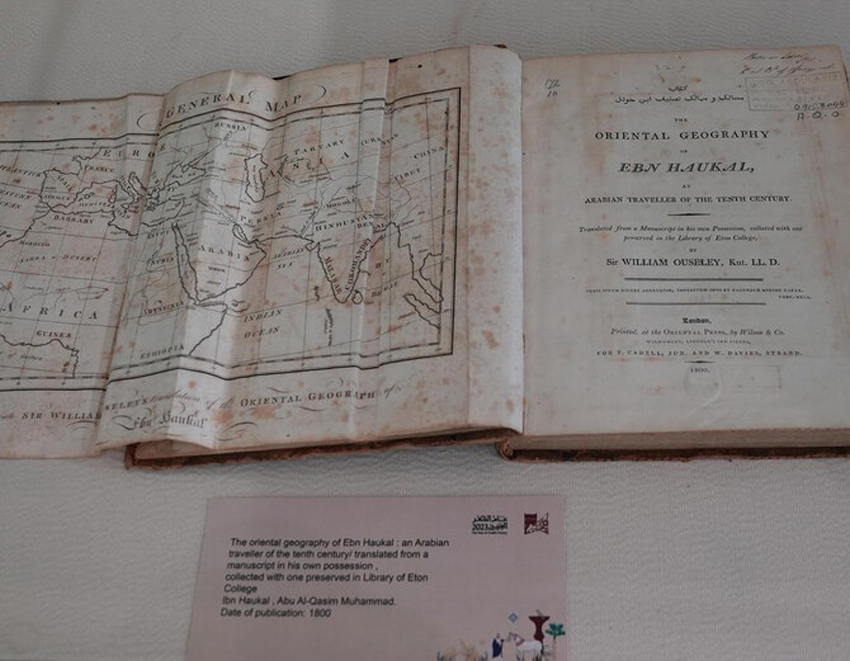 GENERAL MAP
RUSSIA
EUROPE
TARTARY
ASIA
CHINA
TIBET
FRANCE
BARBARY
MOROCCO
PERSIA
MOGUL
HINDUSTAN
ARABIA
ARABIAN
SEA
MALABAR
COROMANDEL
NUBIA
ABYSSINIA
AFRICA
GUINEA
INDIAN
OCEAN
ETHIOPIA
SIR WILLIAM OUSELEY'S translation of the ORIENTAL GEOGRAPHY of
Ebn Haukal
كتاب
مسالك و ممالك تصنيف ابن حوقل
THE
ORIENTAL GEOGRAPHY
OF
EBN HAUKAL,
AN
ARABIAN TRAVELLER OF THE TENTH CENTURY.
Translated from a Manuscript in his own Possession, collated with one
preserved in the Library of Eton College,
BY
Sir WILLIAM OUSELEY, Knt. LL. D.
London,
Printed, at the ORIENTAL PRESS, by Wilson & Co.
WILD-COURT, LINCOLN'S INN FIELDS,
FOR T. CADELL, JUN. AND W. DAVIES, STRAND.
1800.
2023
The oriental geography of Ebn Haukal : an Arabian
traveller of the tenth century/ translated from a
manuscript in his own possession ,
collected with one preserved in Library of Eton
College
Ibn Haukal , Abu Al-Qasim Muhammad.
Date of publication: 1800